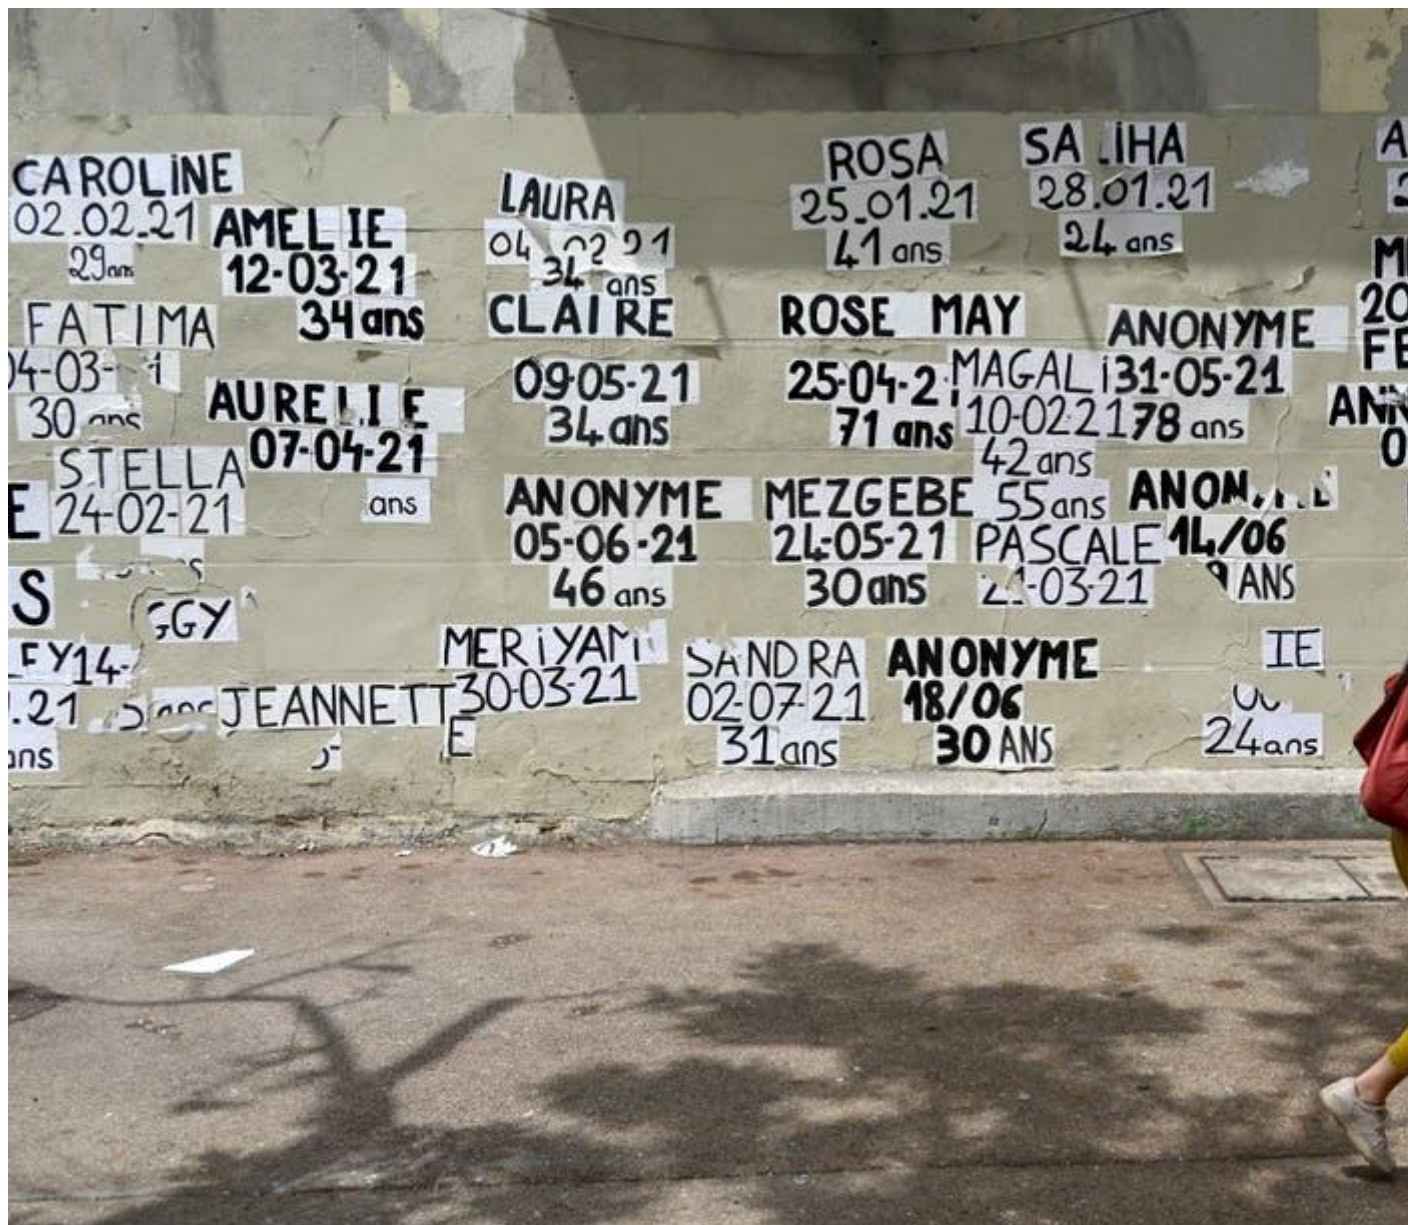 CAROLINE
02.02.21
29ans
AMELIE
12-03-21
34ans
FATIMA
04-03-
30 ans
AURELIE
07-04-21
ans
STELLA
24-02-21
E
S
GGY
EY14-
.21
ans
JEANNETT
E
LAURA
04 02 21
34 ans
CLAIRE
09-05-21
34 ans
ANONYME
05-06-21
46 ans
MERiYAM
30-03-21
ROSA
25.01.21
41 ans
ROSE MAY
25-04-2
71 ans
MEZGEBE
24-05-21
30 ans
SANDRA
02-07-21
31 ans
SALIHA
28.01.21
24 ans
MAGALi
10-02-21
42 ans
55 ans
PASCALE
21-03-21
ANONYME
18/06
30 ANS
ANONYME
31-05-21
78 ans
ANONYME
14/06
9 ANS
IE
24ans
A
2
M
20
FE
ANN
0